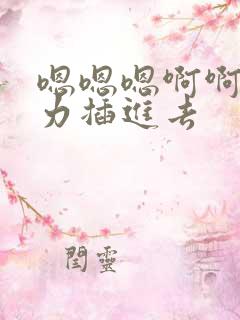 嗯嗯嗯啊啊
力插進去
閆靈